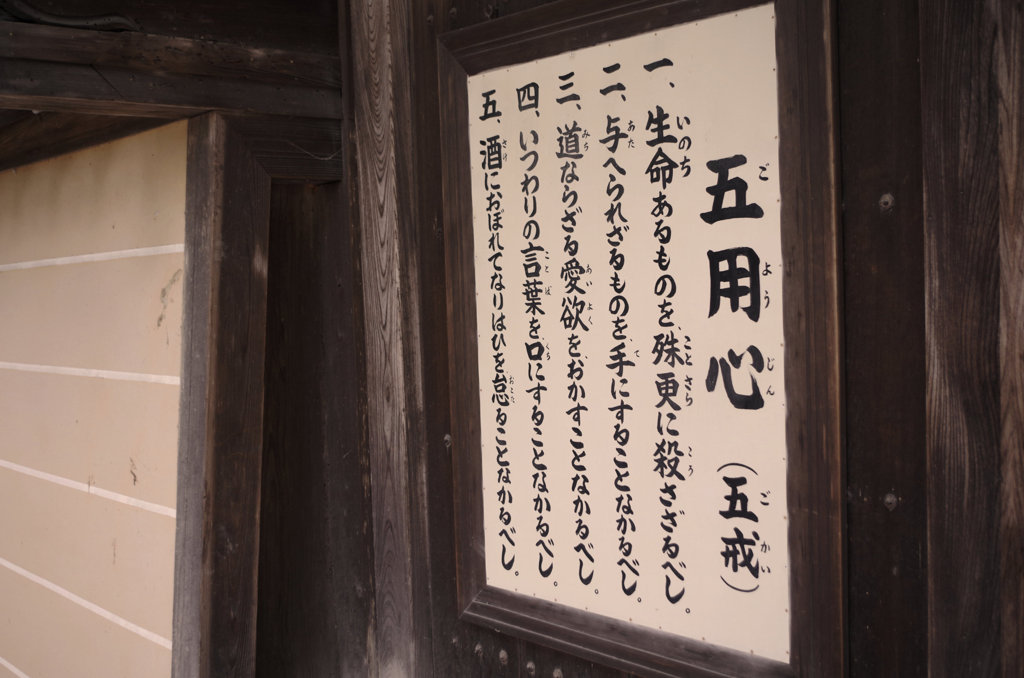 五用心（五戒）
一、生命あるものを、殊更に殺さざるべし。
二、与へられざるものを、手にすることなかるべし。
三、道ならざる愛欲を、おかすことなかるべし。
四、いつわりの言葉を、口にすることなかるべし。
五、酒におぼれてなりはひを怠ることなかるべし。